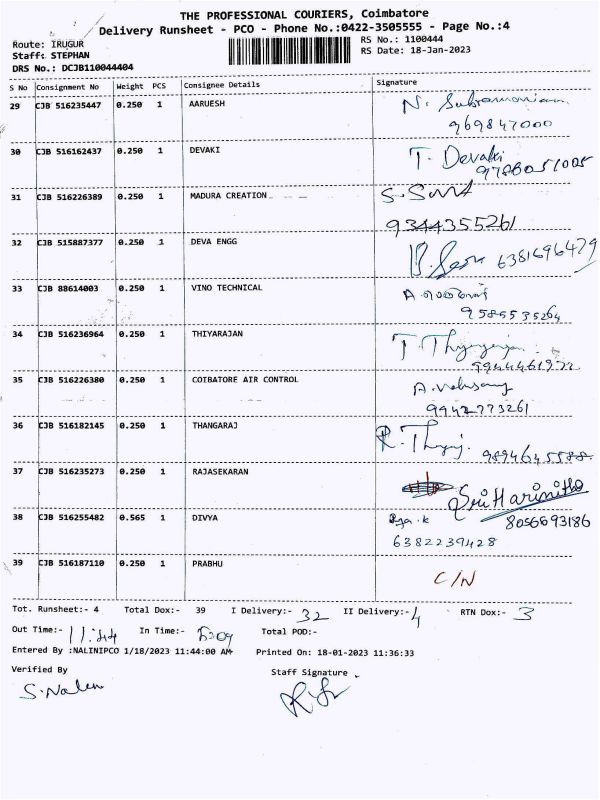 THE PROFESSIONAL COURIERS, Coimbatore
Delivery Runsheet - PCO - Phone No.:0422-3505555 - Page No.:4
Route: IRUGUR RS No.: 1100444
Staff: STEPHAN RS Date: 18-Jan-2023
DRS No.: DCJB110044404
S No Consignment No Weight PCS Consignee Details Signature
29 CJB 516235447 0.250 1 AARUESH N. Subramaniam
969847000
30 CJB 516162437 0.250 1 DEVAKI T. Devaki
9788051005
31 CJB 516226389 0.250 1 MADURA CREATION
9344355261
32 CJB 515887377 0.250 1 DEVA ENGG
6381696479
33 CJB 88614003 0.250 1 VINO TECHNICAL
9585535264
34 CJB 516236964 0.250 1 THIYARAJAN
35 CJB 516226380 0.250 1 COIBATORE AIR CONTROL
9942773261
36 CJB 516182145 0.250 1 THANGARAJ
9894645588
37 CJB 516235273 0.250 1 RAJASEKARAN Sri Harinitha
8056693186
38 CJB 516255482 0.565 1 DIVYA
6382239428
39 CJB 516187110 0.250 1 PRABHU C/N
Tot. Runsheet:- 4 Total Dox:- 39 I Delivery:- 32 II Delivery:- 4 RTN Dox:- 3
Out Time:- 11:44 In Time:- Total POD:-
Entered By :NALINIPCO 1/18/2023 11:44:00 AM Printed On: 18-01-2023 11:36:33
Verified By Staff Signature
S. Nalen